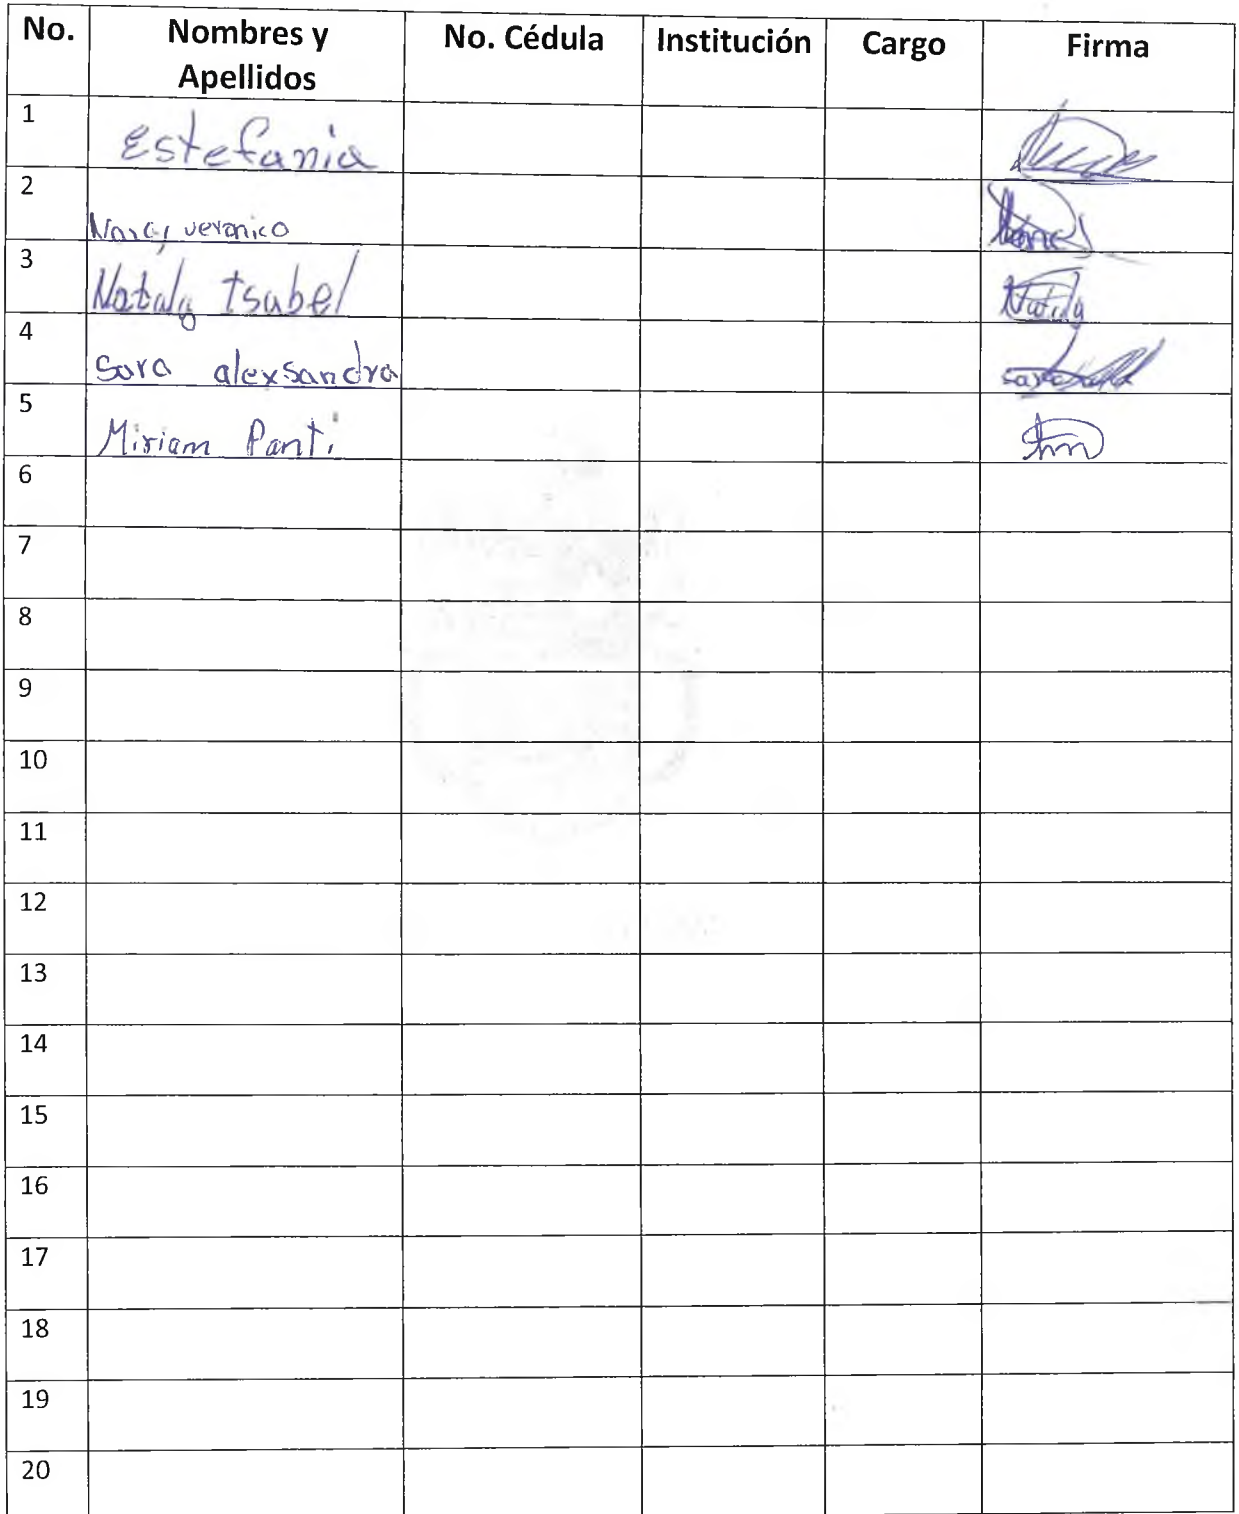 No. Nombres y Apellidos No. Cédula Institución Cargo Firma
1 Estefania
2 veronico
3 Nataly Isabel Nataly
4 Sara alexsandra
5 Miriam Panti
6
7
8
9
10
11
12
13
14
15
16
17
18
19
20